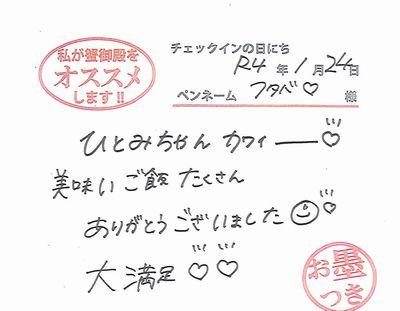 私が蟹御殿を
オススメ
します!!
チェックインの日にち
R4年1月24日
ペンネーム フタバ♡ 様
ひとみちゃん カワイーー♡
美味い ご飯 たくさん
ありがとう ございました☺♡
大満足 ♡♡
お墨
つき